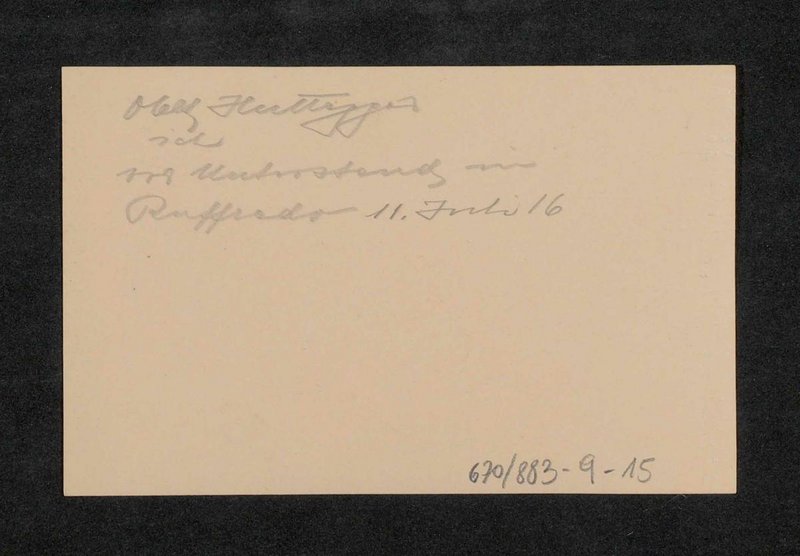 Oblt Huttegger
ich
vor Unterstand in
Ruffredo 11. Juli 16
670/883-9-15